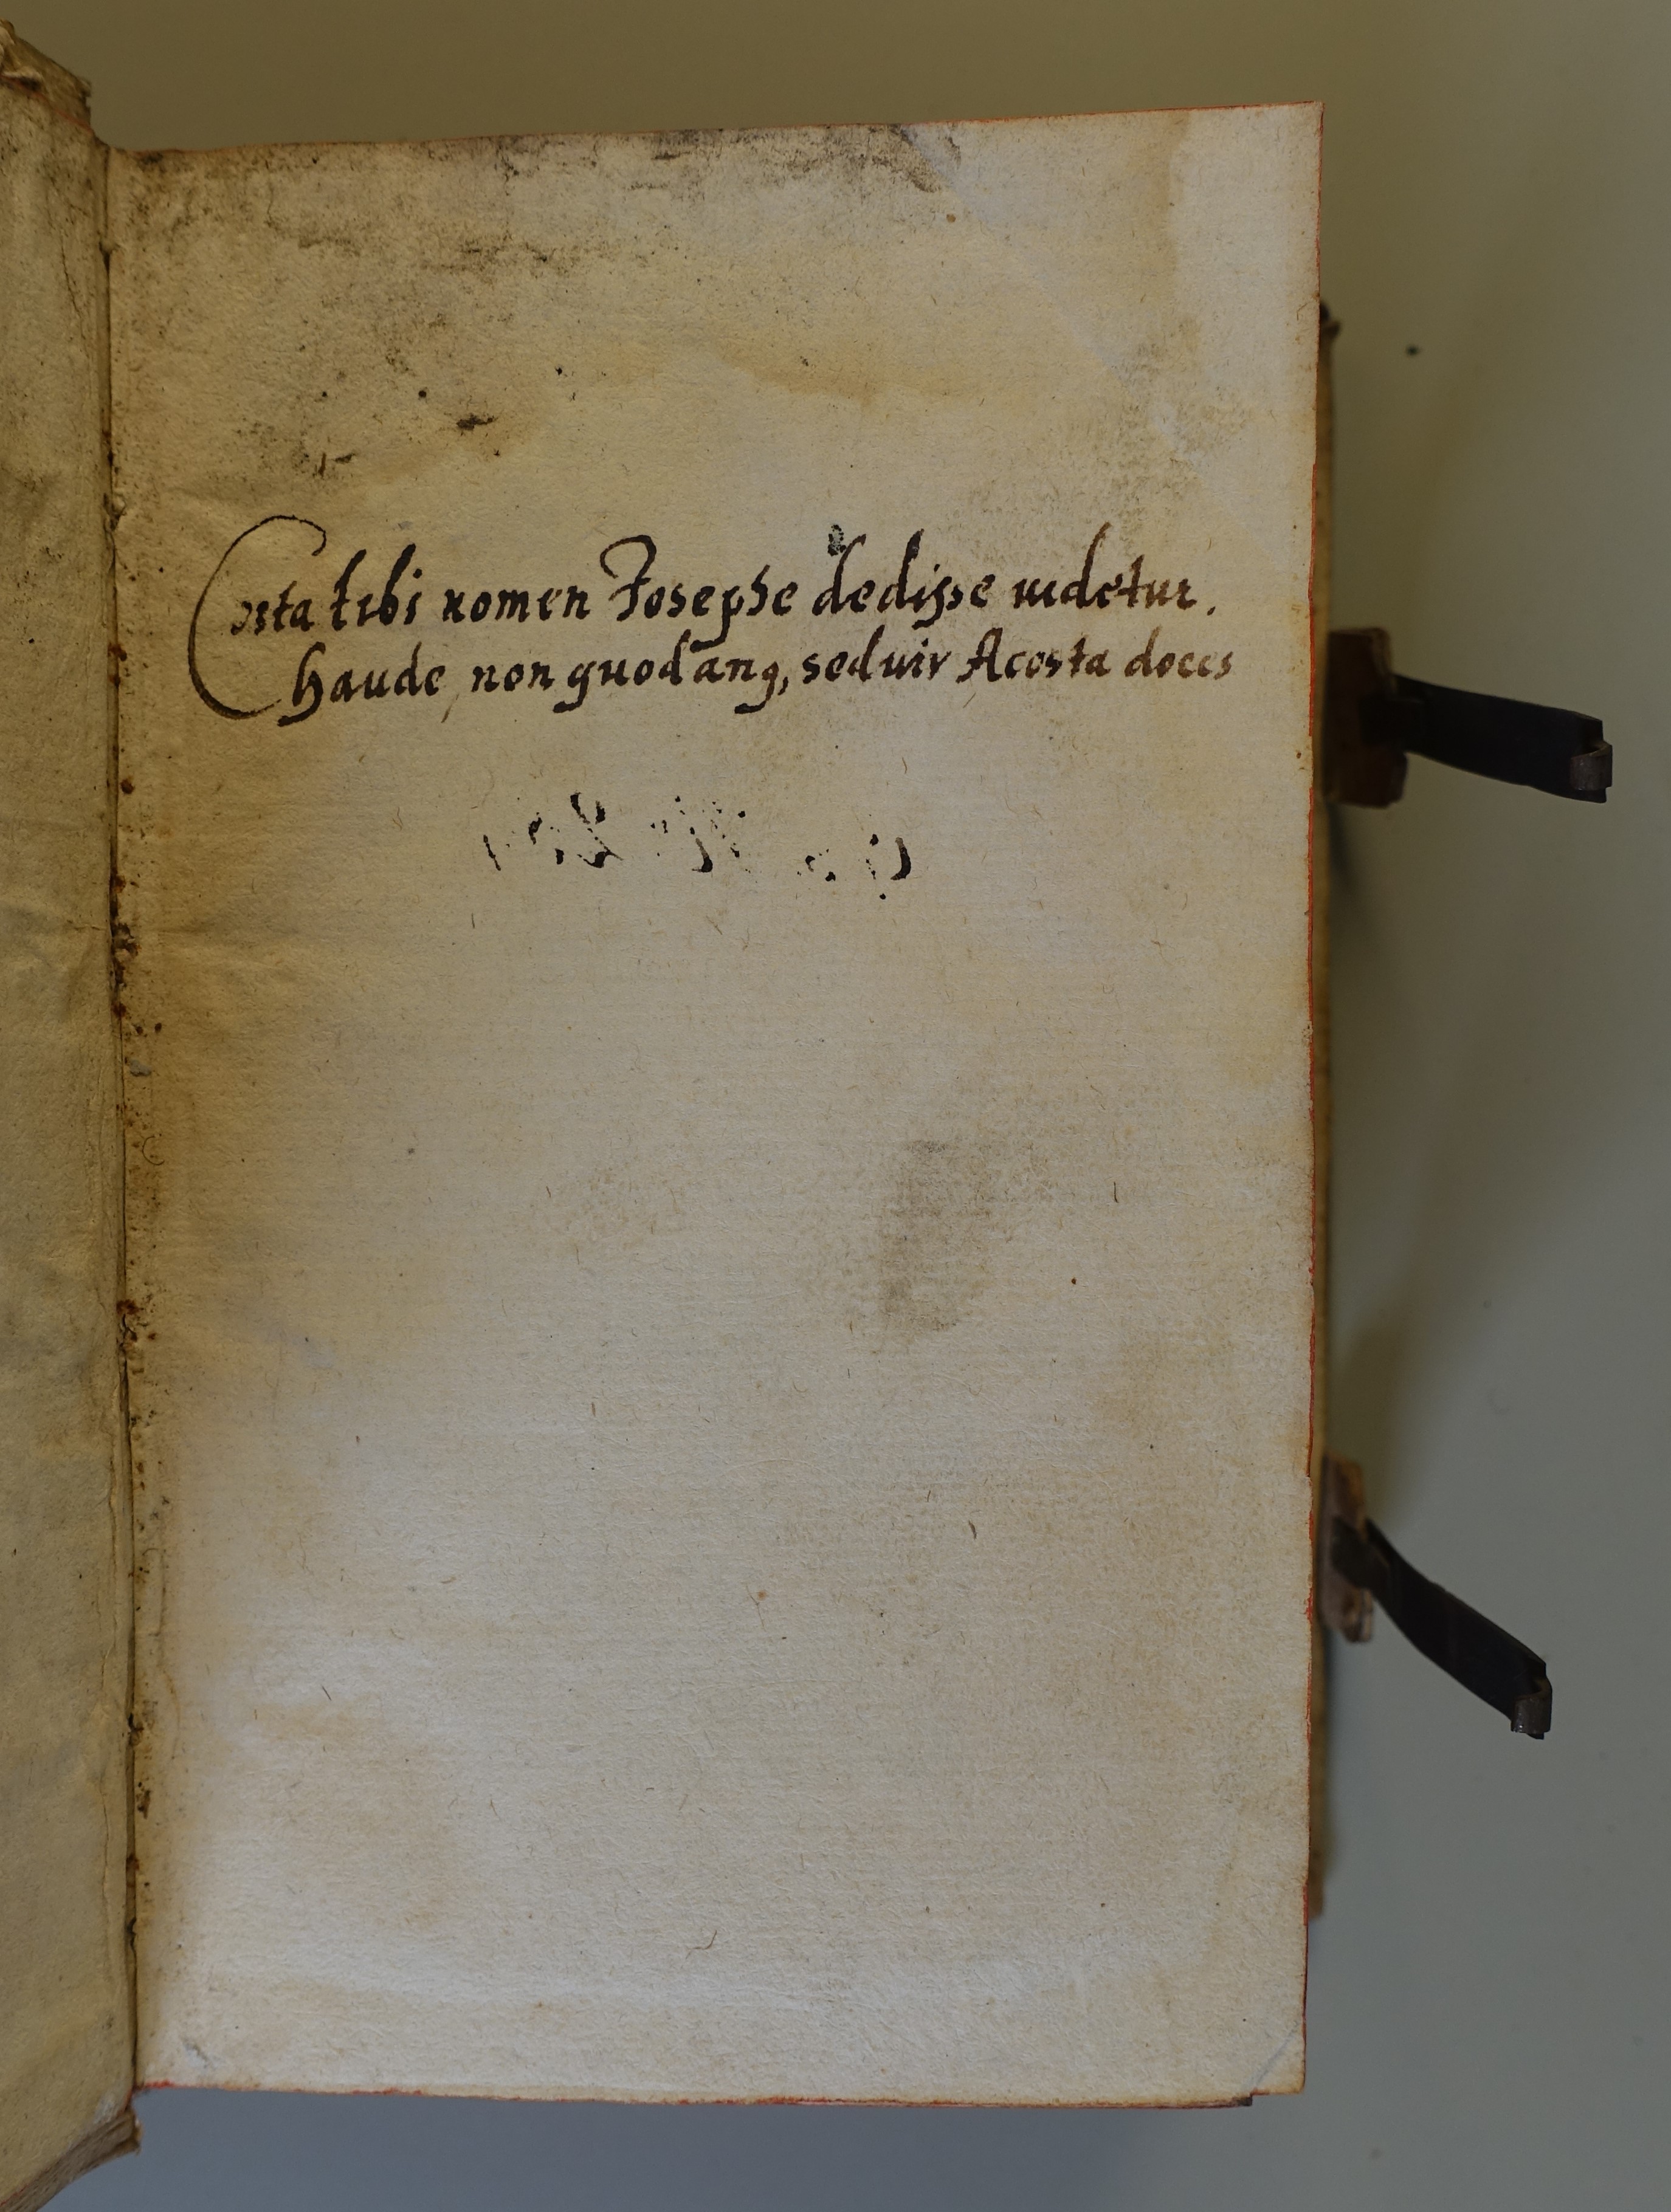 Costa tibi nomen Josephe dedisse uidetur.
haude, non quod ang, sed uir Acosta doces